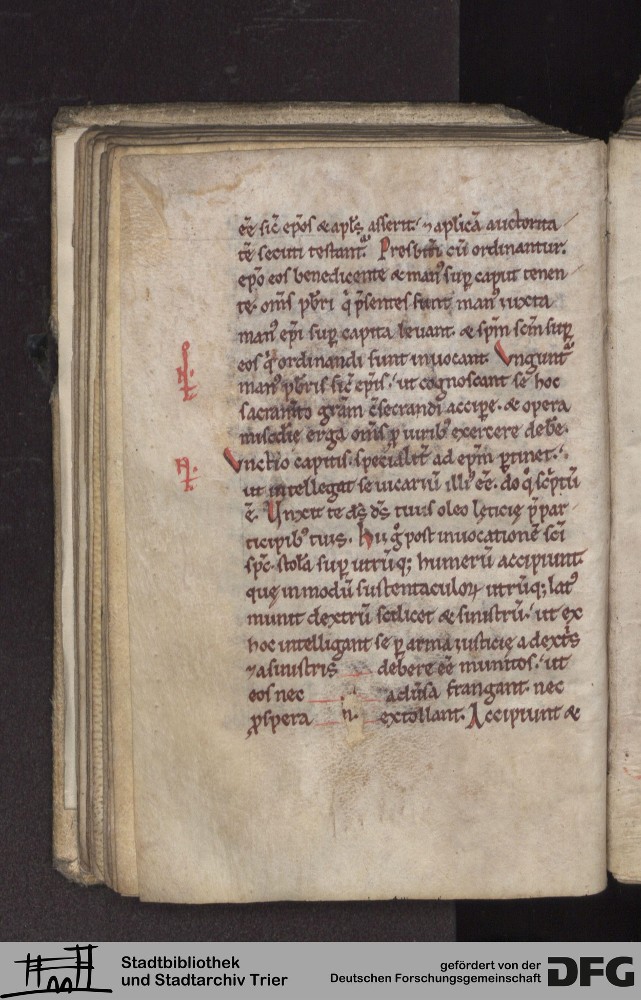 eē sic̄ ep̄os & apl̄s asserit. ⁊ aplicā auctorita
tē secuti testant᷑. Presbit̄i cū ordinantur.
ep̄o eos benedicente & man⁹ sup̱ caput tenen
te. om̄s pb̄ri q̇ p̄sentes sunt man⁹ iuxta
man⁹ ep̄i sup̱ capita leuant. & sp̄m sc̄m sup̱
eos q̇ ordinandi sunt inuocant. Vngunt᷑
man⁹ pb̄ris sic̄ ep̄is. ut cognoscant se hoc
sacram̄to grām c̄secrandi accip̱e. & opera
mis̄cdie erga om̄s p̱ uirib⁹ exercere deb̄e.
Vnctio capitis. specialit̄ ad ep̄m p̱tinet.
ut intellegat se uicariū illi⁹ eē. do q̊ sc̄ptū
ē. Vnxit te ds̄ ds̄ tuus oleo lęticię p̄ par
ticipib⁹ tuis. Hu g̊ post inuocationē sc̄i
sp̄c. stola sup̱ utrūq; humerū accipiunt.
que in modū sustentaculoꝝ utrūq; lat⁹
munit dextrū scilicet & sinistrū. ut ex
hoc intelligant se p̱ arma iusticię a dext̄s
⁊ a sinistris debere eē munitos. ut
eos nec adūsa frangant. nec
ꝓspera extollant. Accipiunt &
Stadtbibliothek
und Stadtarchiv Trier
gefördert von der
Deutschen Forschungsgemeinschaft
DFG